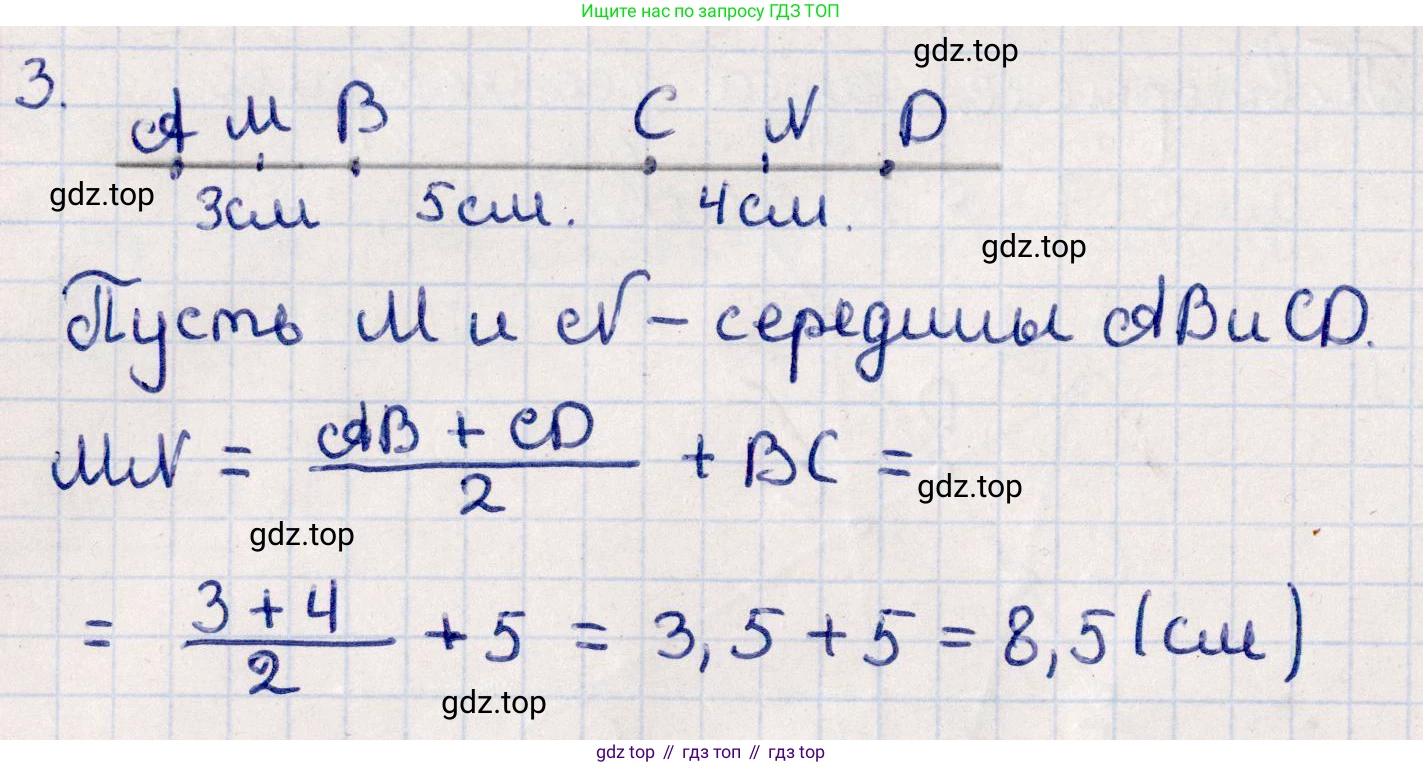 Ищите нас по запросу ГДЗ ТОП
gdz.top
3.
A M B C N D
gdz.top
3см 5см. 4см.
gdz.top
Пусть M и N – середины AB и CD.
MN = \frac{AB + CD}{2} + BC =
gdz.top
gdz.top
= \frac{3 + 4}{2} + 5 = 3,5 + 5 = 8,5 (см)
gdz.top
gdz top // гдз топ // гдз top